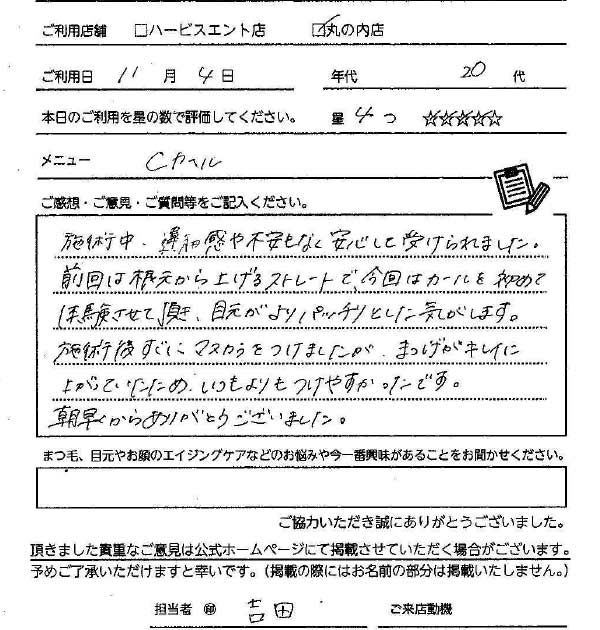 ご利用店舗 □ハービスエント店 ☑丸の内店
ご利用日 11 月 4 日 年代 20 代
本日のご利用を星の数で評価してください。 星 4 つ ☆☆☆☆☆
メニュー Cカール
ご感想・ご意見・ご質問等をご記入ください。
施術中、違和感や不安もなく安心して受けられました。
前回は根元から上げるストレートで今回はカールを初めて
体験させて頂き、目元がよりパッチリとした気がします。
施術後すぐにマスカラをつけましたが、まつげがキレイに
上がっていたため、いつもよりもつけやすかったです。
朝早くからありがとうございました。
まつ毛、目元やお顔のエイジングケアなどのお悩みや今一番興味があることをお聞かせください。
ご協力いただき誠にありがとうございました。
頂きました貴重なご意見は公式ホームページにて掲載させていただく場合がございます。
予めご了承いただけますと幸いです。（掲載の際にはお名前の部分は掲載いたしません。）
担当者 ㊞ 吉田 ご来店動機